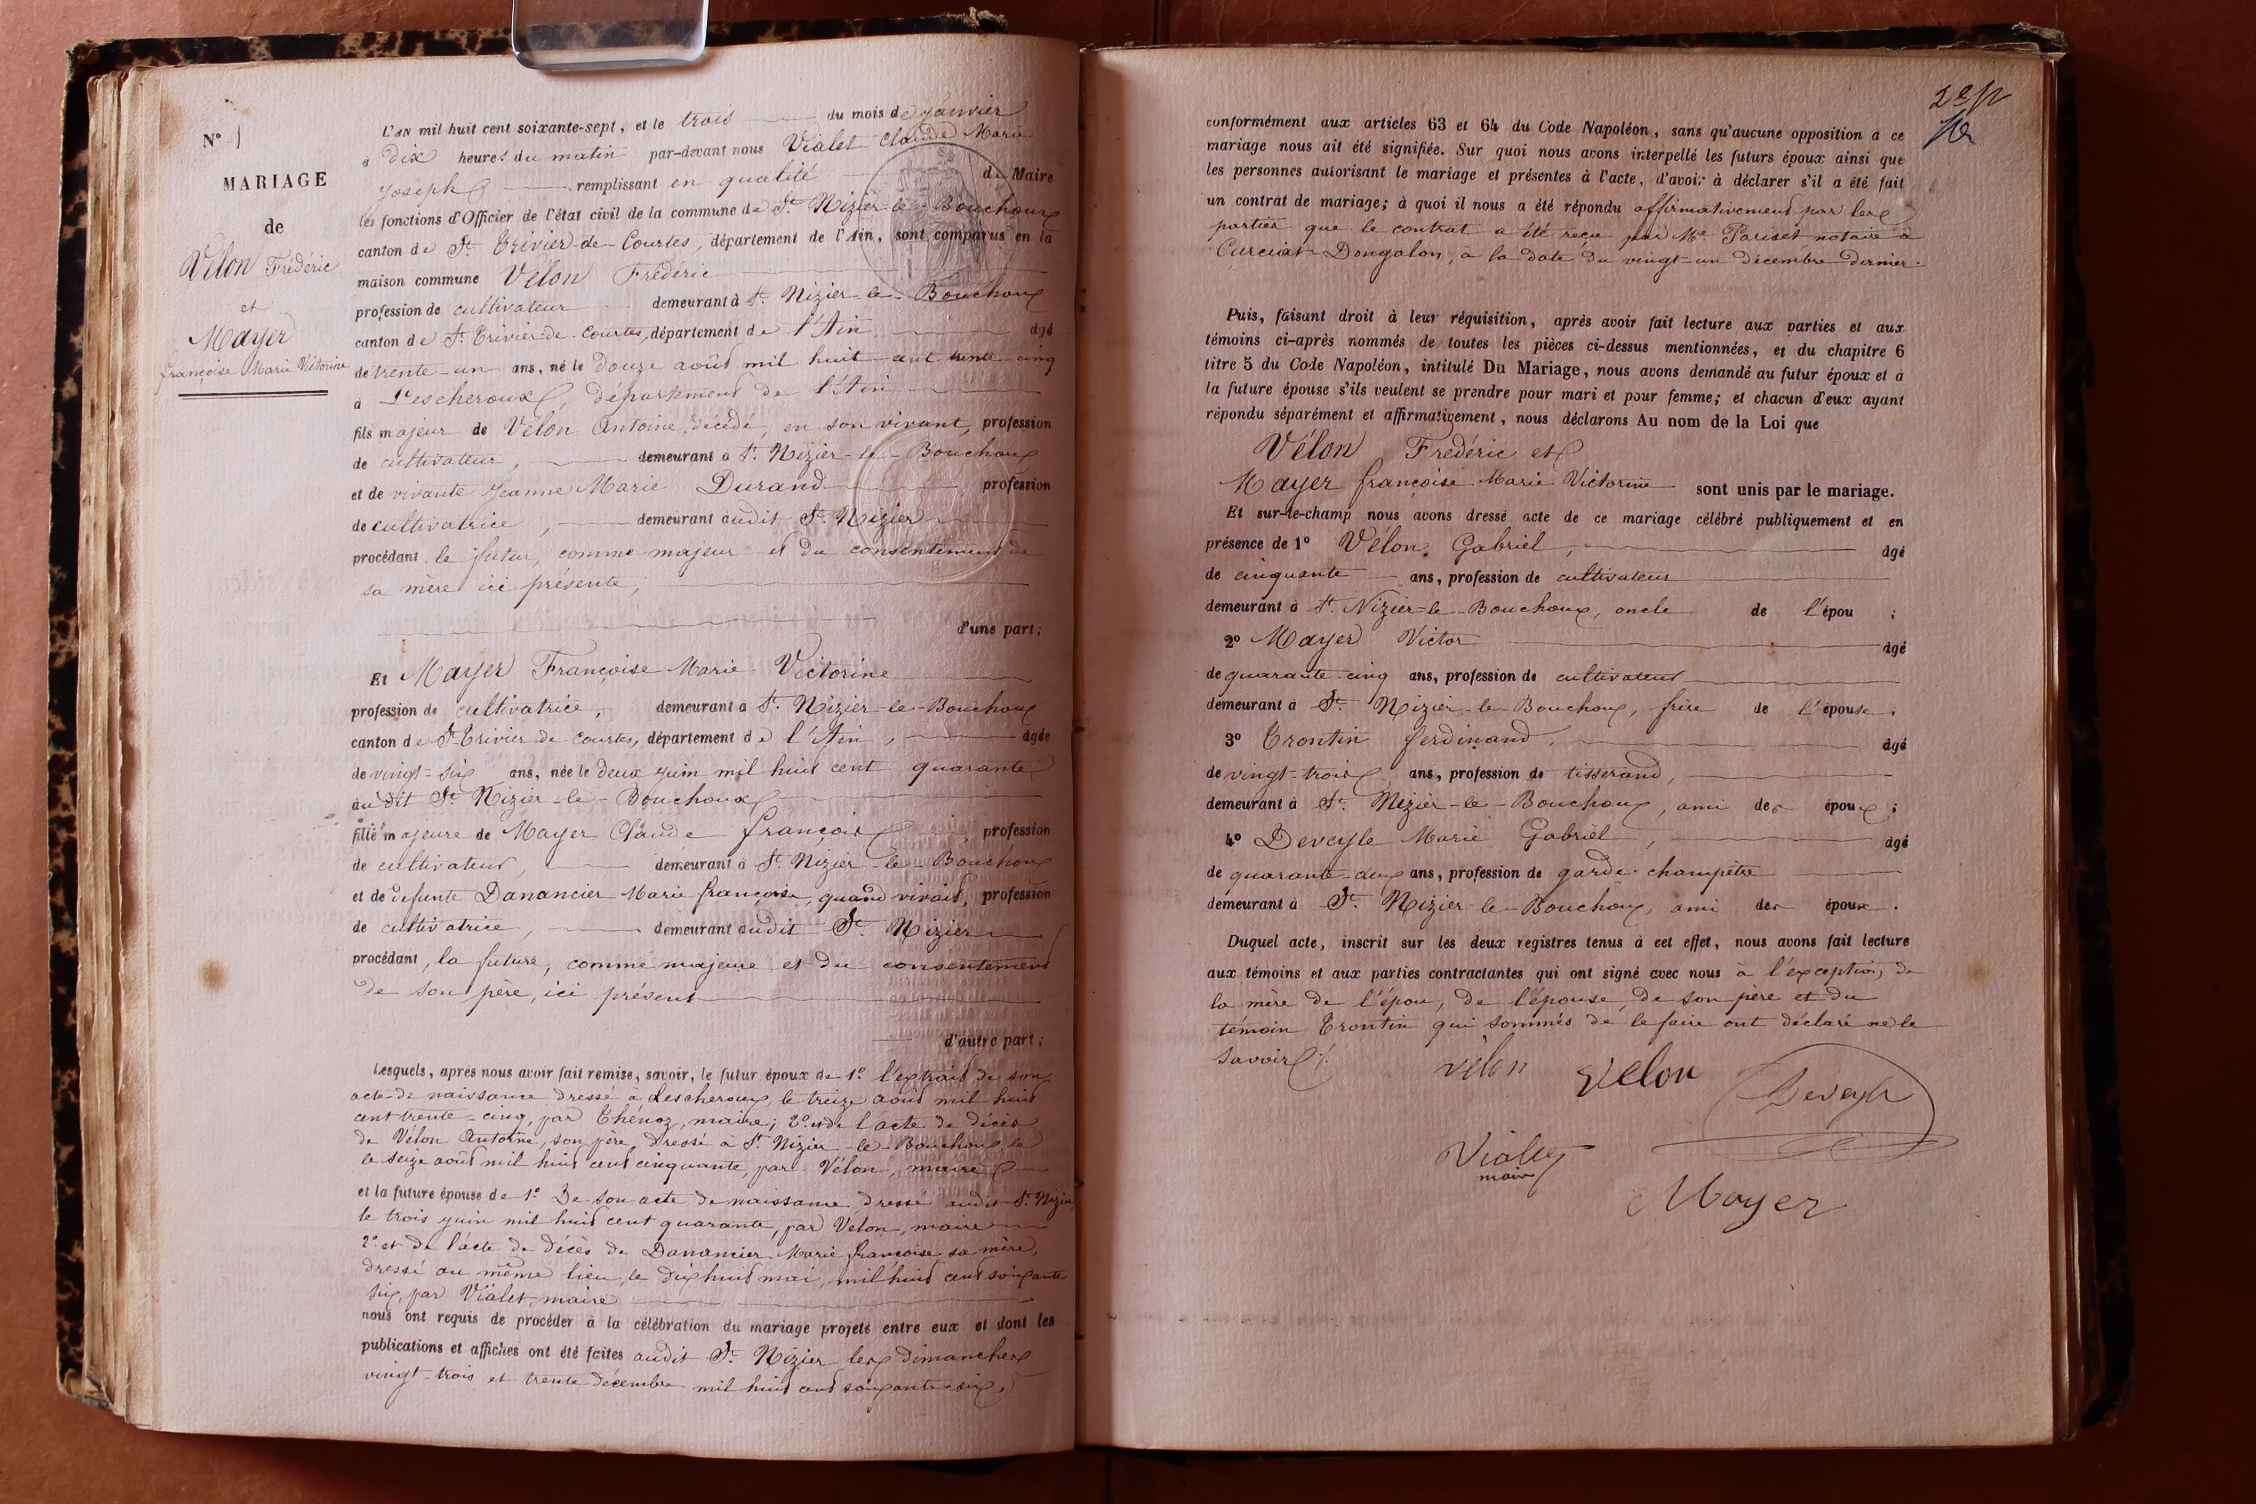 N° 1
MARIAGE
de
Vélon Frédéric
et
Mayer
françoise Marie Victorine
L'AN mil huit cent soixante-sept, et le trois du mois de janvier
à Dix heures du matin par-devant nous Vialet Claude Marie
Joseph remplissant en qualité de Maire
les fonctions d'Officier de l'état civil de la commune de St. Nizier-le-Bouchoux
canton de St. Trivier-de-Courtes, département de l'Ain, sont comparus en la
maison commune Vélon Frédéric
profession de cultivateur demeurant à St. Nizier-le-Bouchoux
canton de St. Trivier-de-Courtes, département de l'Ain, âgé
de trente-un ans, né le douze août mil huit cent trente-cinq
à Lescheroux, département de l'Ain
fils majeur de Vélon Antoine, décédé, en son vivant, profession
de cultivateur, demeurant à St. Nizier-le-Bouchoux
et de vivante Jeanne Marie Durand profession
de cultivatrice, demeurant audit St. Nizier
procédant le futur, comme majeur et du consentement de
sa mère ici présente,
d'une part;
Et Mayer Françoise Marie Victorine
profession de cultivatrice, demeurant à St. Nizier-le-Bouchoux
canton de St. Trivier de Courtes, département de l'Ain, âgée
de vingt-six ans, née le deux juin mil huit cent quarante
au dit St. Nizier-le-Bouchoux
fille majeure de Mayer Claude françois, profession
de cultivateur, demeurant à St. Nizier-le-Bouchoux
et de défunte Danancier Marie françoise, quand vivait, profession
de cultivatrice, demeurant audit St. Nizier
procédant, la future, comme majeure et du consentement
de son père, ici présent
d'autre part;
Lesquels, après nous avoir fait remise, savoir, le futur époux de 1° l'extrait de son
acte de naissance dressé à Lescheroux, le treize août mil huit
cent trente-cinq, par Thénoz, maire; 2° et de l'acte de décès
de Vélon Antoine, son père, dressé à St. Nizier-le-Bouchoux le
le seize août mil huit cent cinquante, par Vélon, maire
et la future épouse de 1° De son acte de naissance dressé audit St. Nizier
le trois juin mil huit cent quarante, par Vélon, maire
2° et de l'acte de décès de Danancier Marie françoise sa mère,
dressé au même lieu, le dix huit mai, mil huit cent soixante
six, par Vialet, maire
nous ont requis de procéder à la célébration du mariage projeté entre eux et dont les
publications et affiches ont été faites audit St. Nizier les dimanches
vingt-trois et trente décembre mil huit cent soixante-six,
conformément aux articles 63 et 64 du Code Napoléon, sans qu'aucune opposition a ce
mariage nous ait été signifiée. Sur quoi nous avons interpellé les futurs époux ainsi que
les personnes autorisant le mariage et présentes à l'acte, d'avoir à déclarer s'il a été fait
un contrat de mariage; à quoi il nous a été répondu affirmativement par les
parties que le contrat a été reçu par Me. Pariset, notaire à
Curciat-Dongalon, à la date du vingt-un décembre dernier.
Puis, faisant droit à leur réquisition, après avoir fait lecture aux parties et aux
témoins ci-après nommés de toutes les pièces ci-dessus mentionnées, et du chapitre 6
titre 5 du Code Napoléon, intitulé Du Mariage, nous avons demandé au futur époux et à
la future épouse s'ils veulent se prendre pour mari et pour femme; et chacun d'eux ayant
répondu séparément et affirmativement, nous déclarons Au nom de la Loi que
Vélon Frédéric et
Mayer françoise Marie Victorine sont unis par le mariage.
Et sur-le-champ nous avons dressé acte de ce mariage célébré publiquement et en
présence de 1° Vélon, Gabriel, âgé
de cinquante ans, profession de cultivateur
demeurant à St. Nizier-le-Bouchoux, oncle de l'épou ;
2° Mayer Victor âgé
de quarante-cinq ans, profession de cultivateur
demeurant à St. Nizier-le-Bouchoux, frère de l'épouse.
3° Trontin ferdinand, âgé
de vingt-trois ans, profession de tisserand,
demeurant à St. Nizier-le-Bouchoux, ami des époux;
4° Deveyle Marie Gabriel, âgé
de quarante-deux ans, profession de garde-champêtre
demeurant à St. Nizier-le-Bouchoux, ami des époux.
Duquel acte, inscrit sur les deux registres tenus à cet effet, nous avons fait lecture
aux témoins et aux parties contractantes qui ont signé avec nous à l'exception, de
la mère de l'épou, de l'épouse, de son père et du
témoin Trontin qui sommés de le faire ont déclaré ne le
savoir
vélon Velon Deveyle
Vialet
maire
Mayer